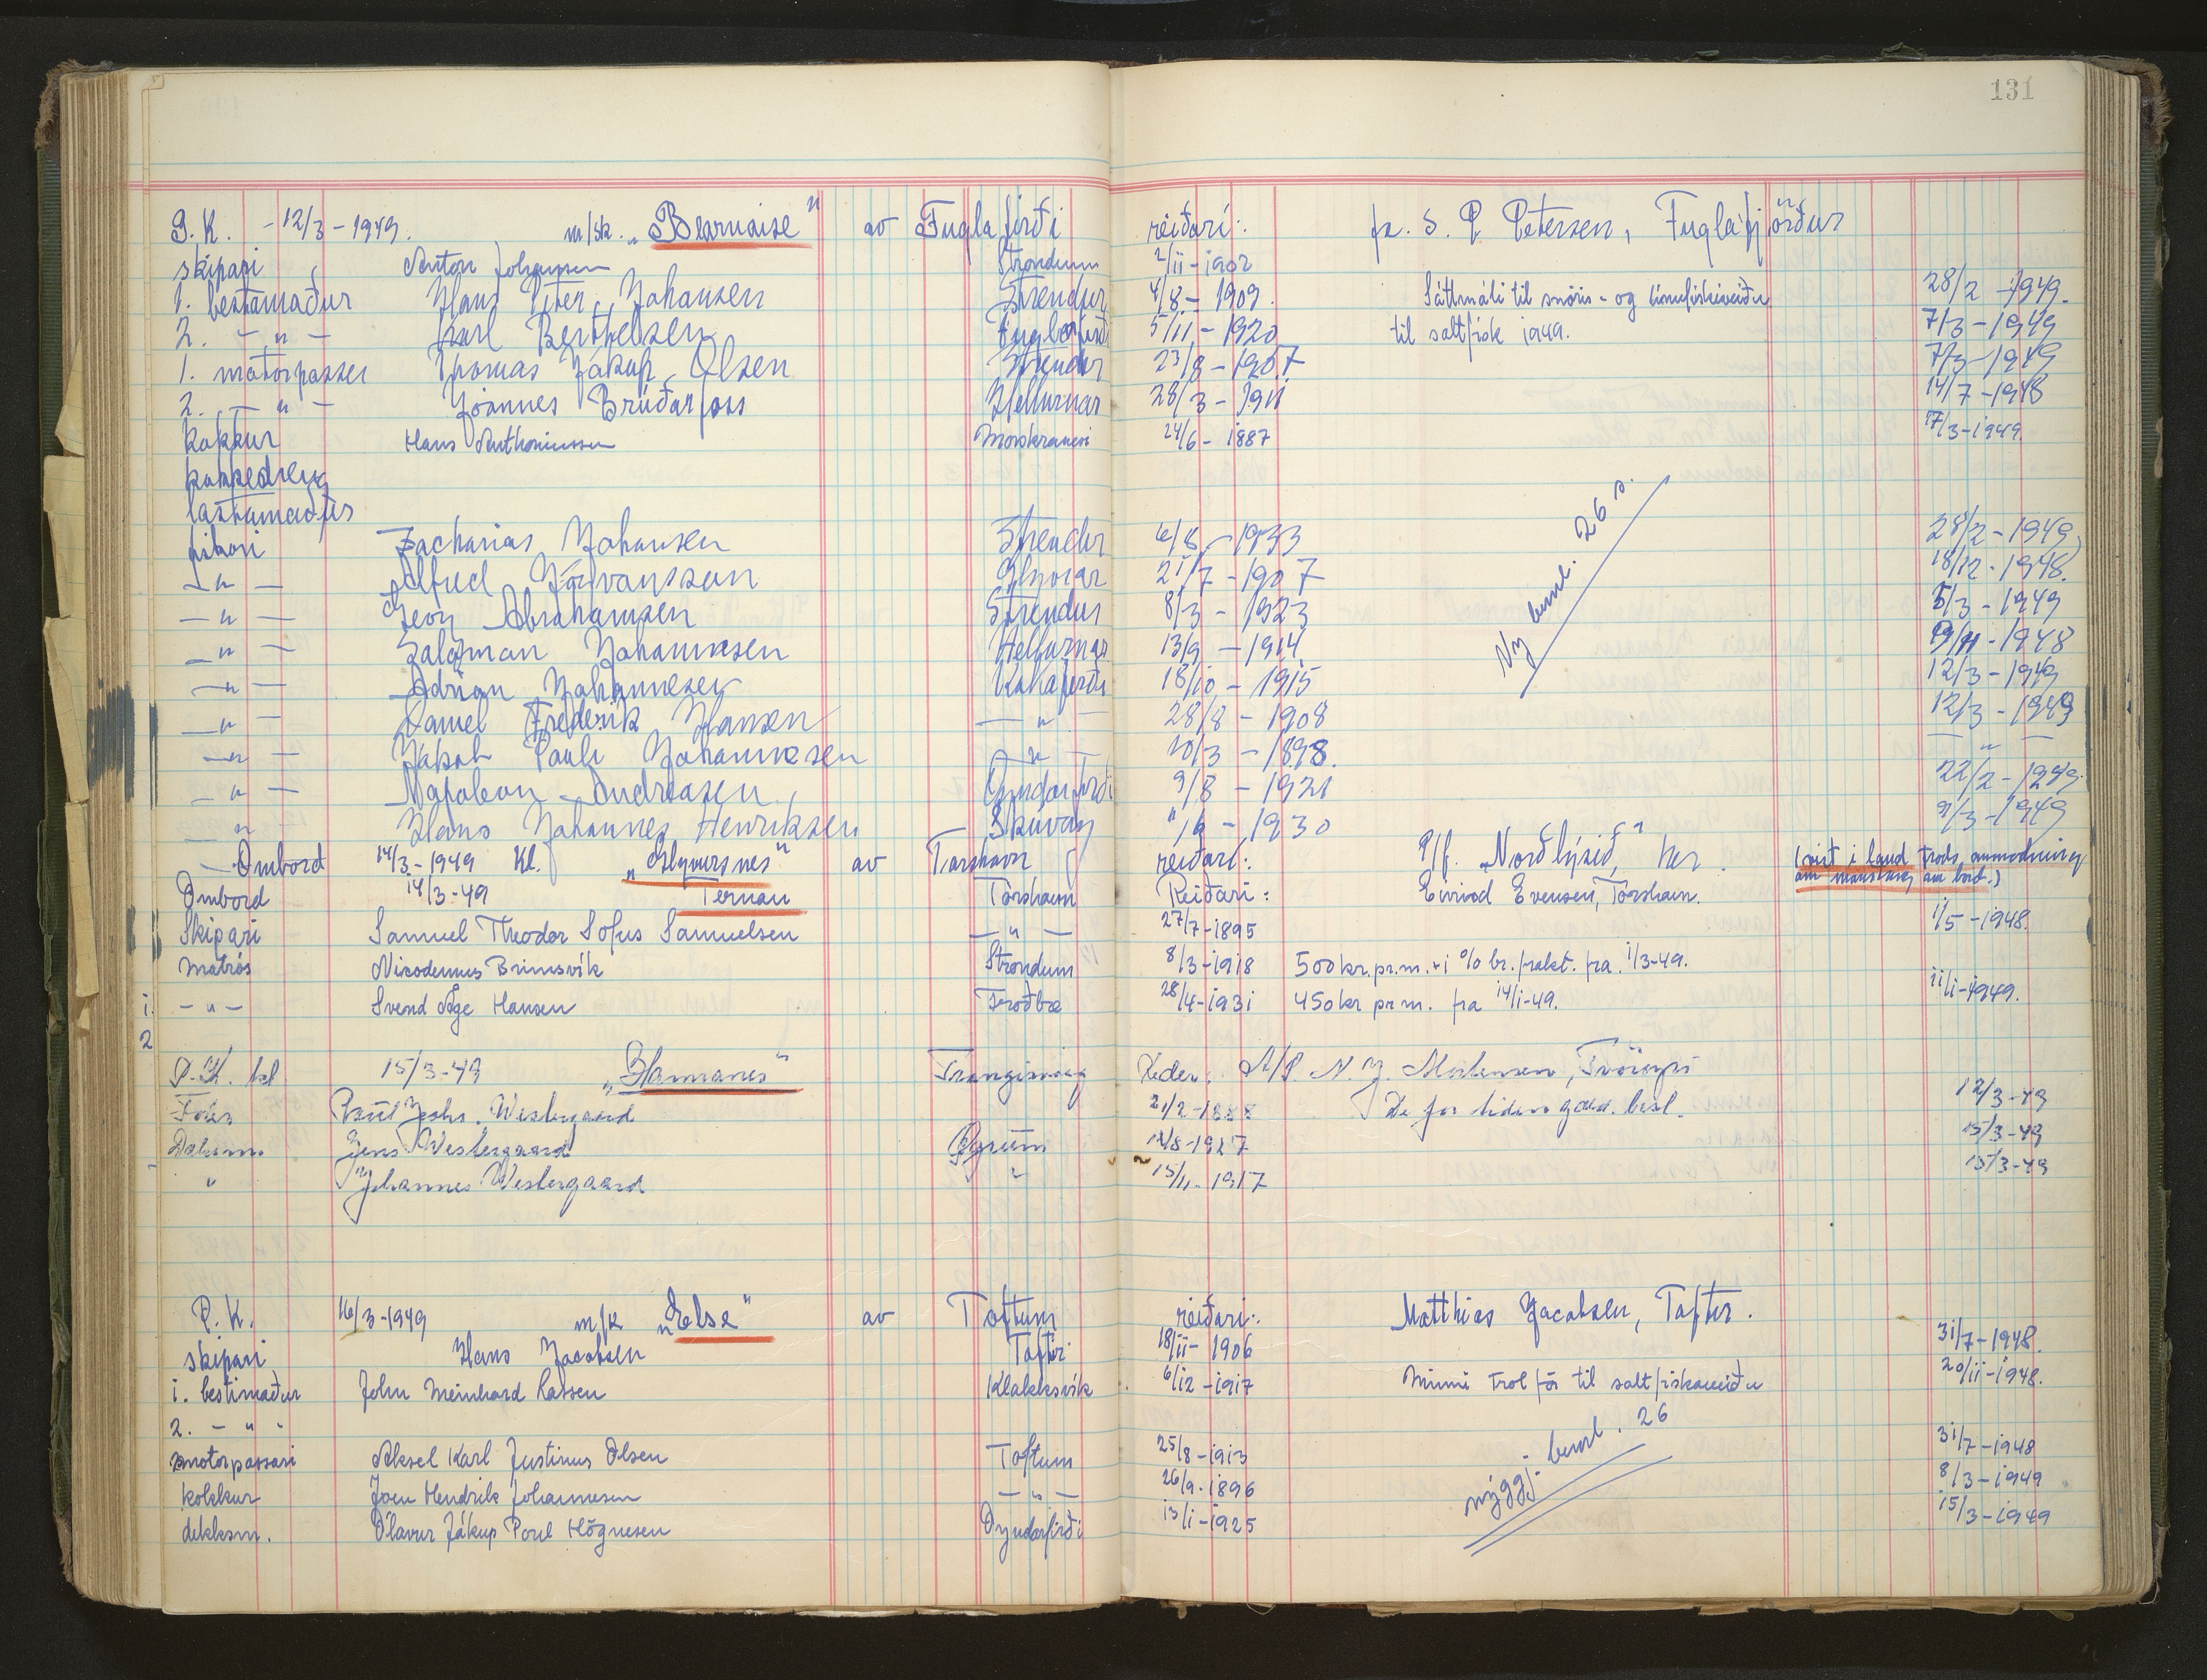 131
P.K. - 12/3 - 1949. m/sk. "Bearnaise" av Fuglafirði reiðari: fa. S. P. Petersen, Fuglafjørður
skipari Anton Johansen Strondum 2/11-1902
1. bestamaður Hans Peter Johansen Strendur 4/8 - 1909. Sáttmáli til snøris- og línufiskiveiðu 28/2 - 1949.
2. - " - Karl Berthelsen Fuglafirði 5/11 - 1920 til saltfisk 1949. 7/3 - 1949
1. motorpasser Thomas Jákup Olsen Strendur 23/8 - 1907 7/3 - 1949
2. - " - Jóannes Brúðarfoss Hellurnar 28/3 - 1911 14/7 - 1948
kokkur Hans Anthoniussen Morskranesi 24/6 - 1887 17/3 - 1949.
kokkedreng
lastamaður
fiskari Zacharias Johansen Strendur 6/8 - 1933 28/2 - 1949
- " - Alfred Glyvrar 21/7 - 1907 18/12 - 1948.
- " - Georg Abrahamsen Strendur 8/3 - 1923 5/3 - 1949
- " - Salomon Johannesen Hellurnar 13/9 - 1914 - 1948
- " - Adrian Johannesen 18/10 - 1915 12/3 - 1949
- " - Daniel Frederik Hansen - " - 28/8 - 1908 12/3 - 1949
- " - Jákob Pauli Johannesen - " - 10/3 - 1898. - " -
- " - Napoleon Andreasen Oyndarfirði 9/8 - 1921 22/2 - 1949.
- " - Hans Johannes Henriksen Skúvoy - 1930 9/3 - 1949
Ny beml. 26 s.
Ombord 14/3 - 1949 Kl. "Glyversnes" av Torshavn reiðari: P/f. "Norðlýsið", her. (sist i land trods anmodning
om mønstring om bord.)
Ombord 14/3-49 Ternan Torshavn Reiðari: Eivind Evensen, Torshavn.
Skipari Samuel Theodor Sofus Samuelsen - " - 27/7-1895 1/5 - 1948.
Matrós Nicodemus Brimsvík Strondum 8/3-1918 500 kr. pr. m. + 1 % br. frakt. fra. 1/3-49.
1. - " - Svend Åge Hansen Froðbæ 28/4-1931 450 kr pr m. fra 14/1-49. 11/1-1949.
2
P.K. tel 15/3-49 "Hamranes" Trangisvaag Reder. A/S. N. J. Mortensen, Tvöroyri
Fører Poul Johs. Westergaard 21/2-1888 De før tiden gæld. besl. 12/3-49
Dæksm. Jens Westergaard 12/8-1927 15/3-49
" Johannes Westergaard " 15/11-1917 15/3-49
P.K. 16/3-1949 m/k "Else" av Toftum reiðari: Matthias Jacobsen, Toftir.
skipari Hans Jacobsen Toftir 18/11-1906 31/7-1948.
1. bestimaður John Meinhard Lassen Klakksvík 6/12-1917 20/11-1948.
2. - " -
motorpassari Aksel Karl Justinus Olsen Toftum 25/8-1913 nýggj. beml. 26 31/7-1948
kokkur Joen Hendrik Johannesen - " - 26/9-1896 8/3-1949
dekksm. Ólavur Jákup Poul Høgnesen Oyndarfirði 13/1-1925 15/3-1949